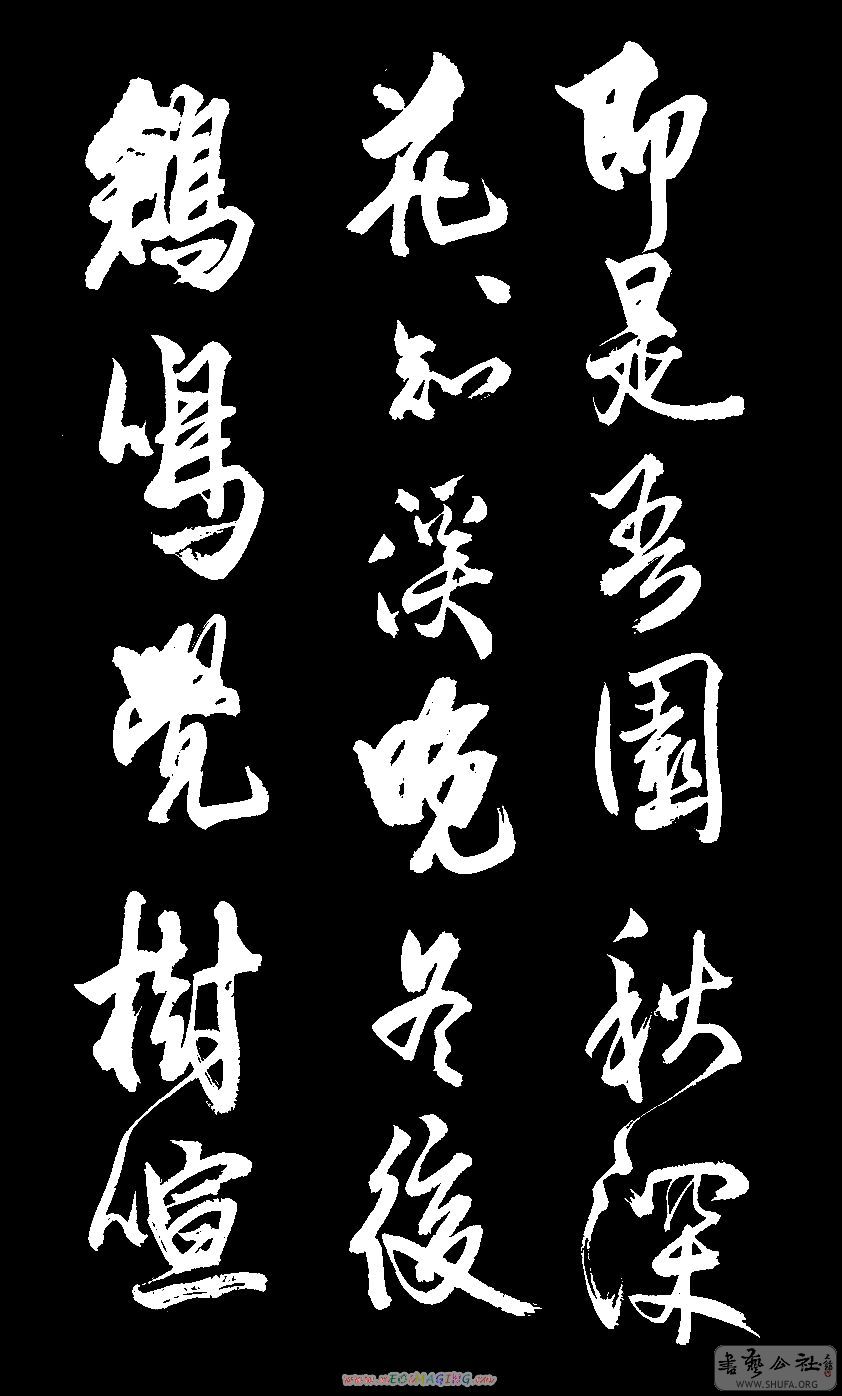 即是吾園秋深
花、知溪晚冬後
鳴覺樹喧
書藝公社
WWW.SHUFA.ORG
www.nEOIMAGING.cn